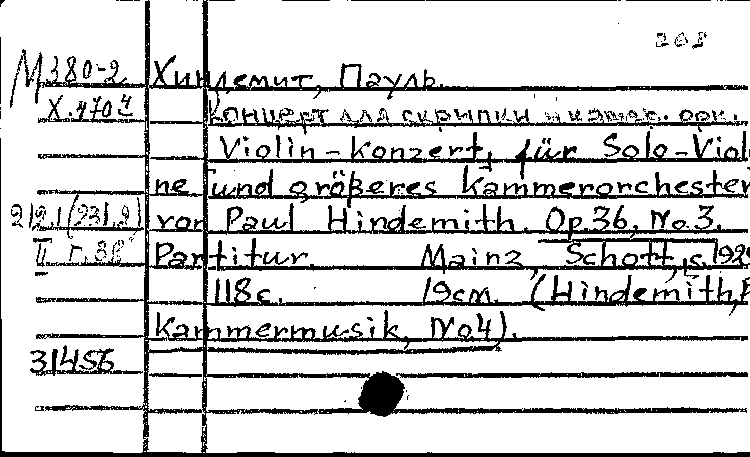 268
М380-2 Хиндемит, Пауль.
Х.470 Концерт для скрипки и камер. орк.
Violin-Konzert, für Solo-Viol
ne und größeres Kammerorchester
212.1(231.2) von Paul Hindemith. Op.36, No.3.
II г.3 Partitur. Mainz, Schott, c.192
118с. 19см. (Hindemith,
Kammermusik, No4).
31456